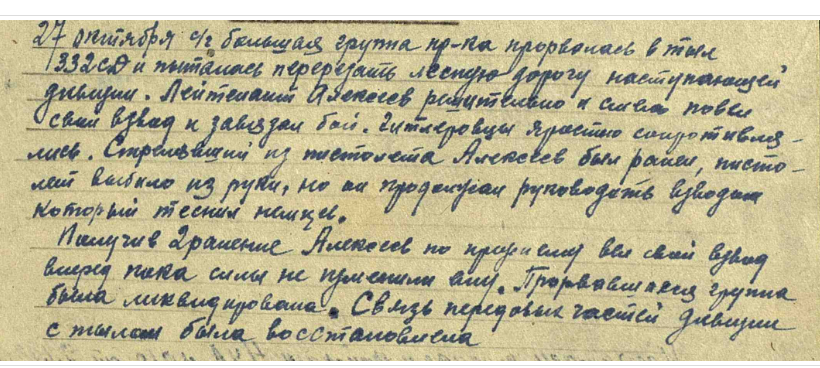 27 октября с/г. большая группа пр-ка прорвалась в тыл
332 сд и пыталась перерезать лесную дорогу наступающей
дивизии. Лейтенант Алексеев решительно и смело повел
свой взвод и завязал бой. Гитлеровцы яростно сопротивля-
лись. Стрелявший из пистолета Алексеев был ранен, писто-
лет выбило из руки, но он продолжал руководить взводом
который теснил немцев.
Получив 2 ранение Алексеев по прежнему вел свой взвод
вперед пока силы не изменили ему. Прорвавшаяся группа
была ликвидирована. Связь передовых частей дивизии
с тылом была восстановлена